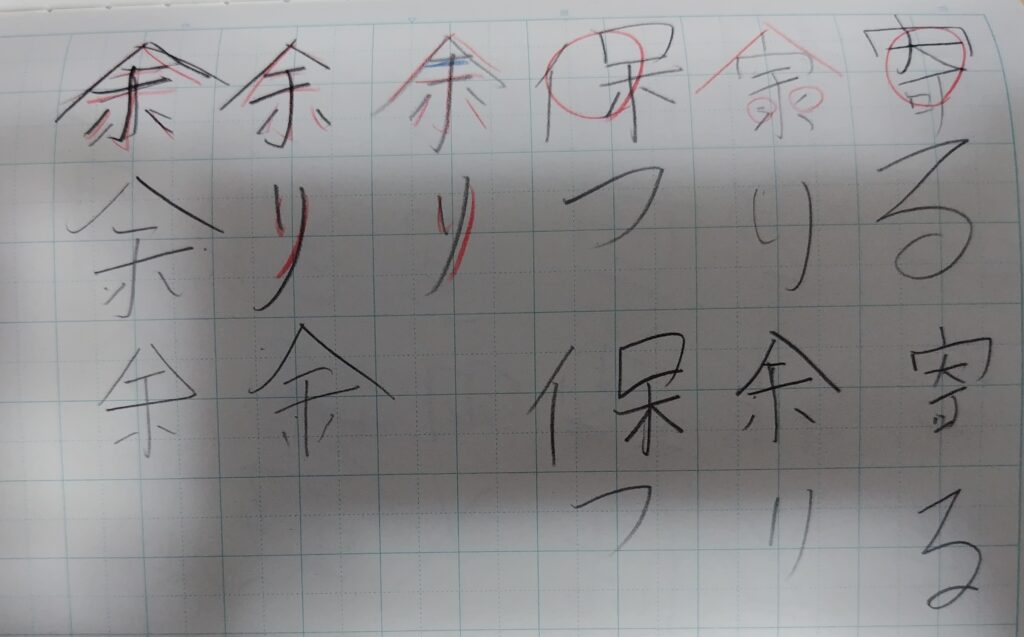 寄る寄る
余り余り
保つ保つ
余り
余り余
余余余